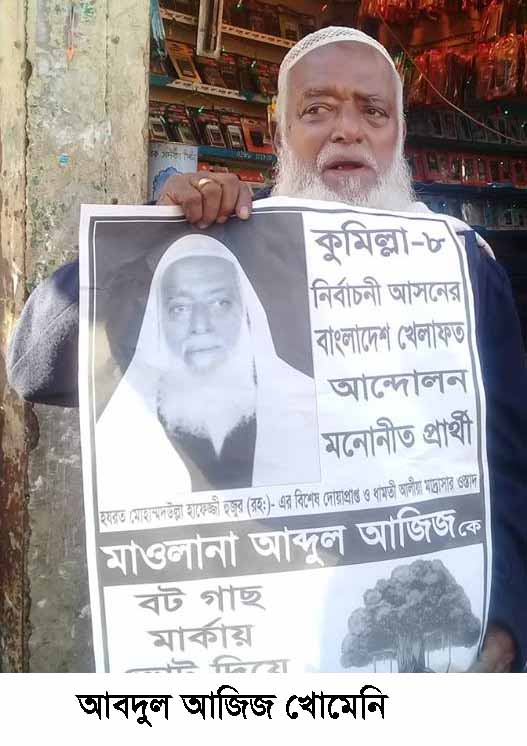 কুমিল্লা-৮
নির্বাচনী আসনের
বাংলাদেশ খেলাফত
আন্দোলন
মনোনীত প্রার্থী
হযরত মোহাম্মদউল্লা হাফেজ্জী হুজুর (রহঃ)- এর বিশেষ দোয়াপ্রাপ্ত ও ধামতী আলীয়া মাদ্রাসার ওস্তাদ
মাওলানা আব্দুল আজিজ কে
বট গাছ
মার্কায়
ভোট দিয়ে
আবদুল আজিজ খোমেনি